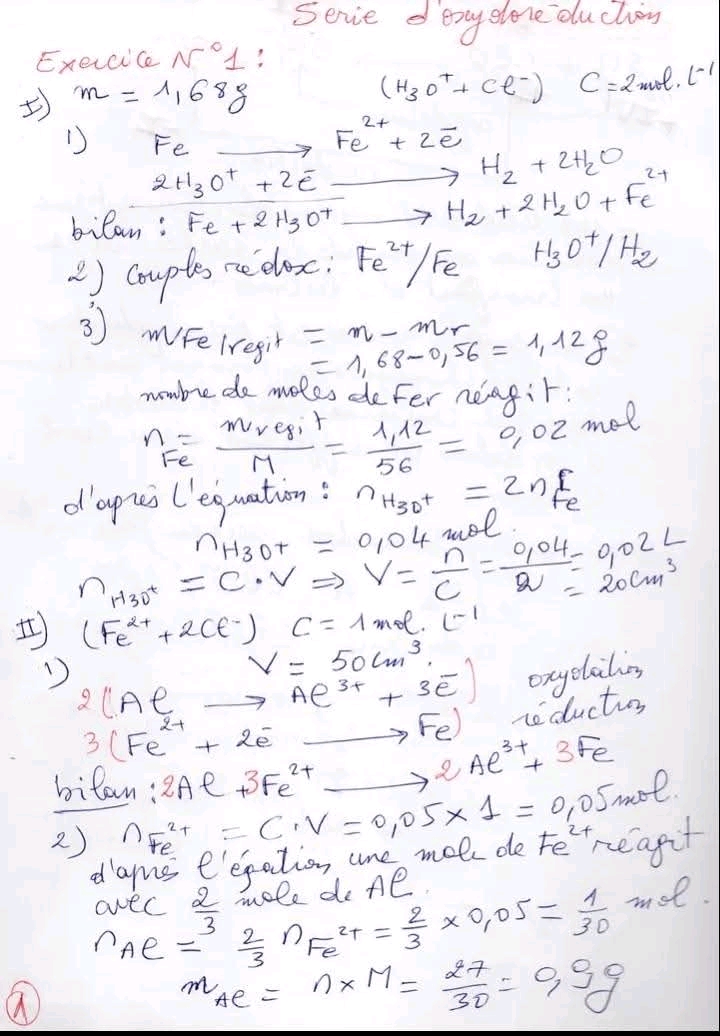 Serie d'oxydoréduction
Exercice N°1 :
I) m = 1,68g (H3O+ + Cl-) C = 2mol.L-1
1) Fe ⟶ Fe2+ + 2ē
2H3O+ + 2ē ⟶ H2 + 2H2O
bilan : Fe + 2H3O+ ⟶ H2 + 2H2O + Fe2+
2) Couples rédox : Fe2+/Fe H3O+/H2
3) mFe/regit = m - mr
= 1,68-0,56 = 1,12g
nombre de moles de Fer réagit :
nFe = mregit/M = 1,12/56 = 0,02 mol
d'après l'équation : nH3O+ = 2nFe
nH3O+ = 0,04 mol.
nH3O+ = C.V ⇒ V = n/C = 0,04/2 = 0,02L
= 20cm3
II) (Fe2+ + 2Cl-) C = 1mol.L-1
V = 50cm3.
1) 2(Al ⟶ Al3+ + 3ē) oxydation
3(Fe2+ + 2ē ⟶ Fe) réduction
bilan : 2Al + 3Fe2+ ⟶ 2Al3+ + 3Fe
2) nFe2+ = C.V = 0,05 x 1 = 0,05mol.
d'après l'éqation une mole de Fe2+ réagit
avec 2/3 mole de Al.
nAl = 2/3 nFe2+ = 2/3 x 0,05 = 1/30 mol.
mAl = n x M = 27/30 = 0,9g
1